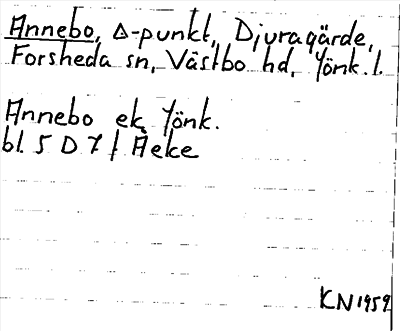 Annebo, △-punkt, Djuragärde,
Forsheda sn, Västbo hd, Jönk. l.
Annebo ek. Jönk.
bl. 5 D 7 f Åeke
KN 1959